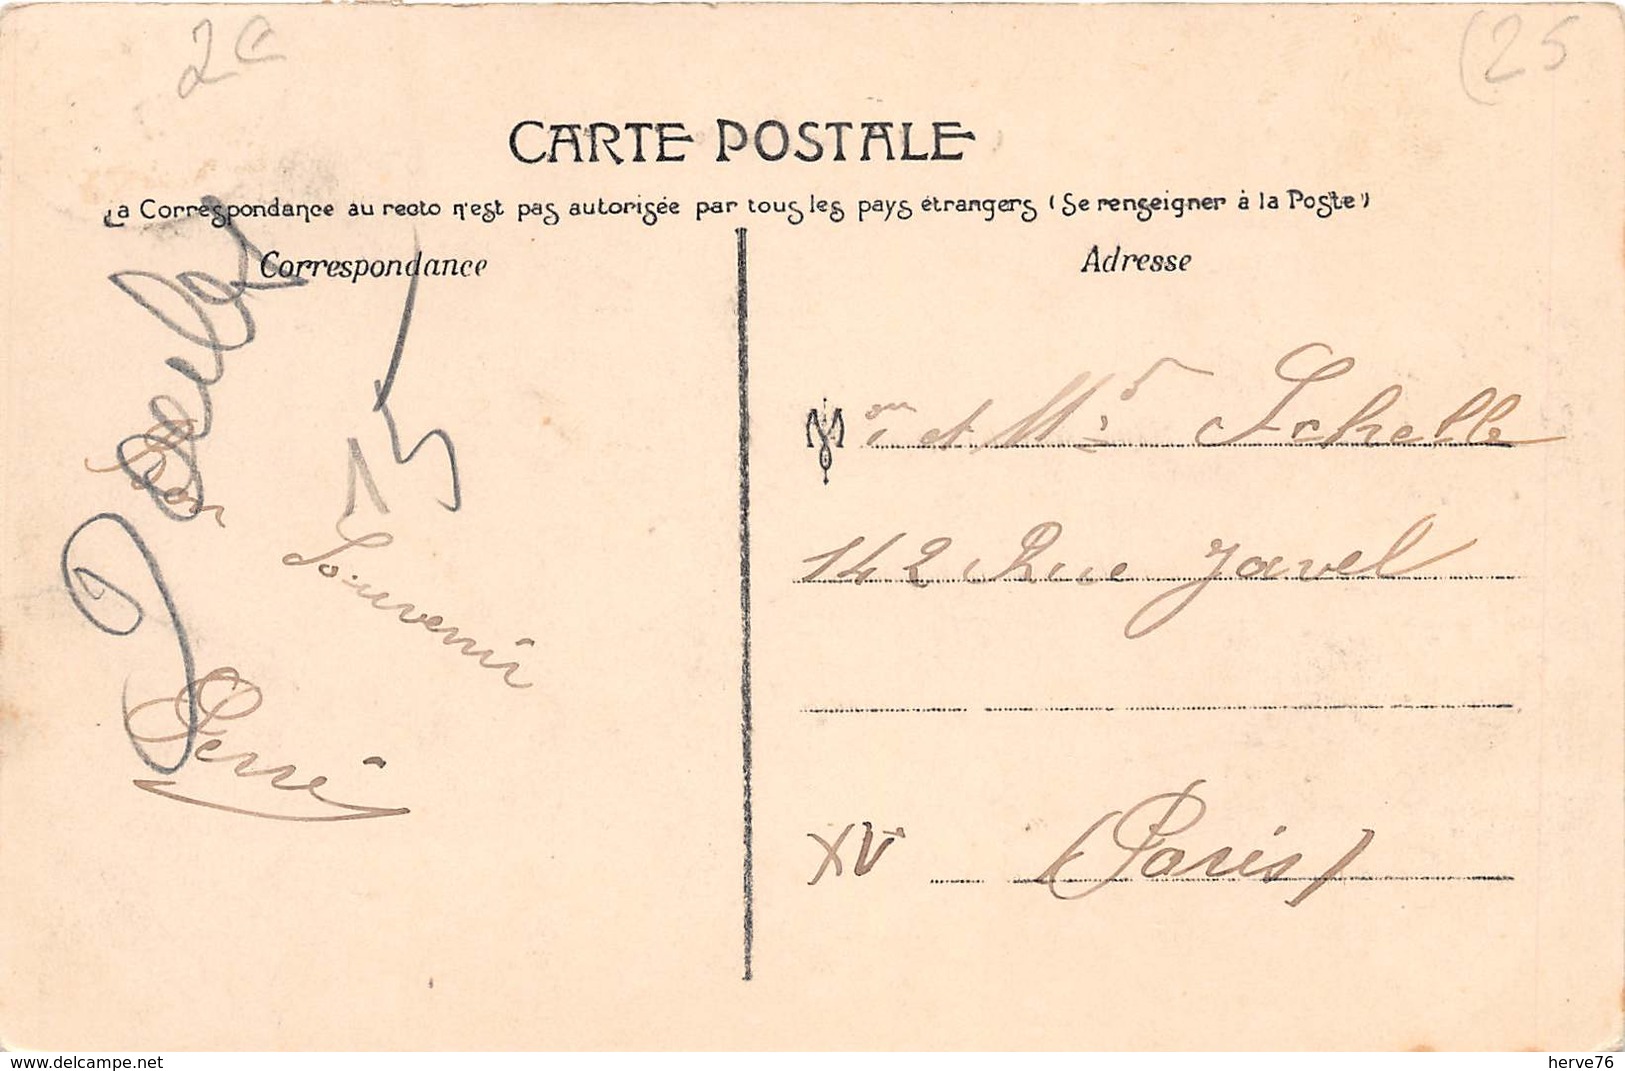 2e
(25
CARTE POSTALE
La Correspondance au recto n'est pas autorisée par tous les pays étrangers (Se renseigner à la Poste)
Correspondance
Adresse
Bon
Souvenir
Perré
15
M et Schelle
142 Rue Javel
XV (Paris)
www.delcampe.net
herve76